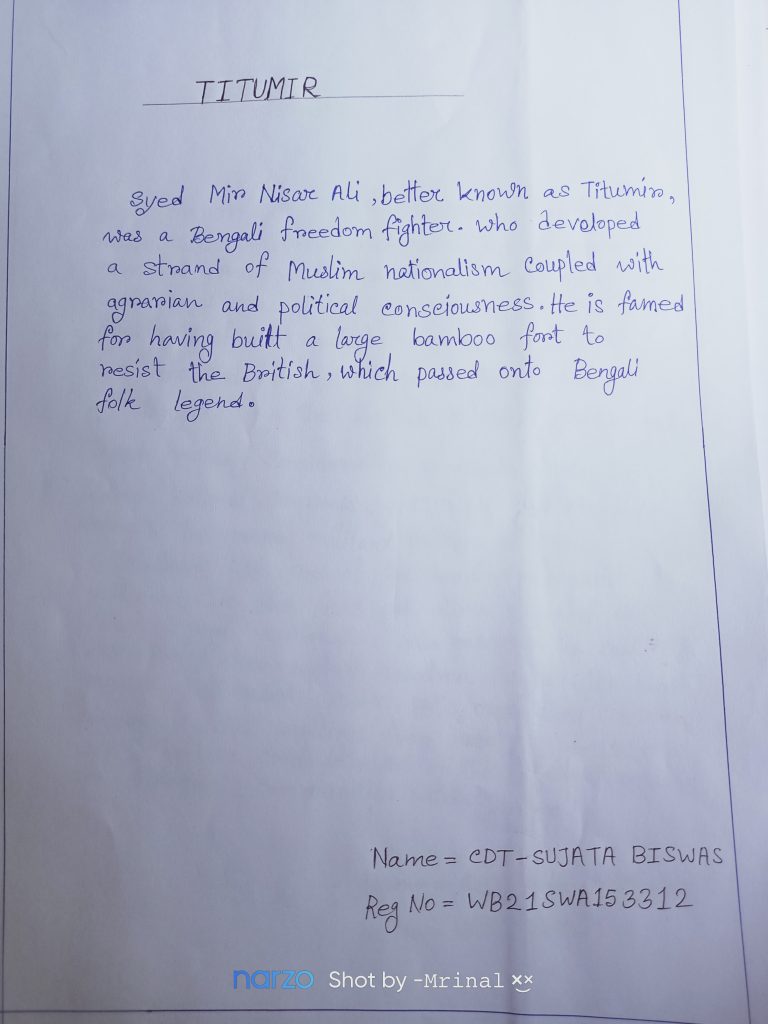 TITUMIR
Syed Mir Nisar Ali, better known as Titumir,
was a Bengali freedom fighter. who developed
a strand of Muslim nationalism coupled with
agrarian and political consciousness. He is famed
for having built a large bamboo fort to
resist the British, which passed onto Bengali
folk legend.
Name = CDT-SUJATA BISWAS
Reg No = WB21SWA153312
narzo Shot by -Mrinal ×͜×